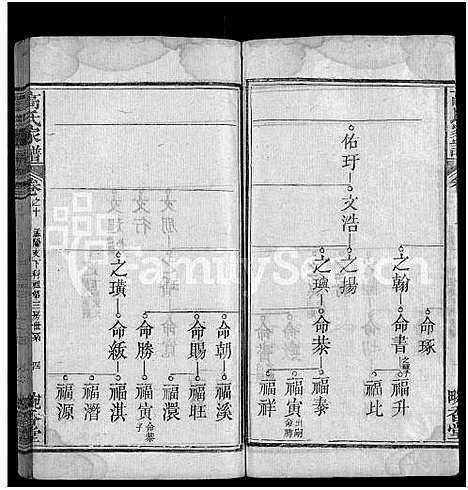 高氏家譜
卷之十
四
佑玗
文浩
之翰
之揚
之璵
之璜
命琢
命書
命恭
命朝
命賜
命勝
命紱
福升
福比
福泰
福寅
出嗣命勝
福祥
福溪
福旺
福澴
福寅
命恭子
福淇
福潛
福源
FamilySearch